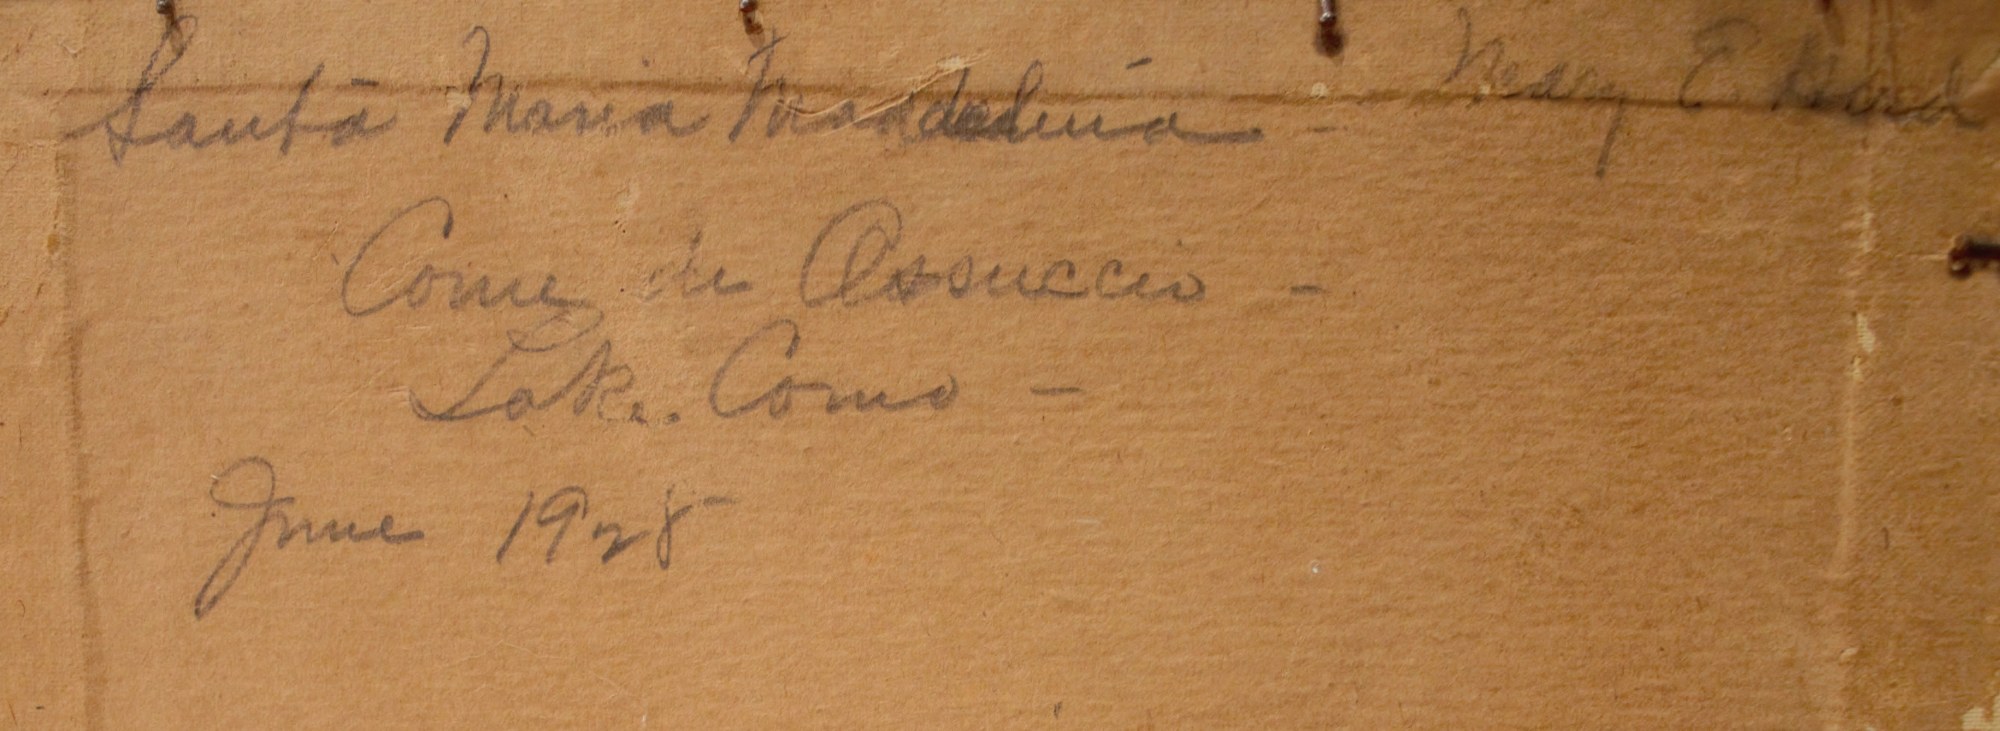 Santa Maria Maddelena - Mary E.
Come de Ossuccio -
Lake Como -
June 1928